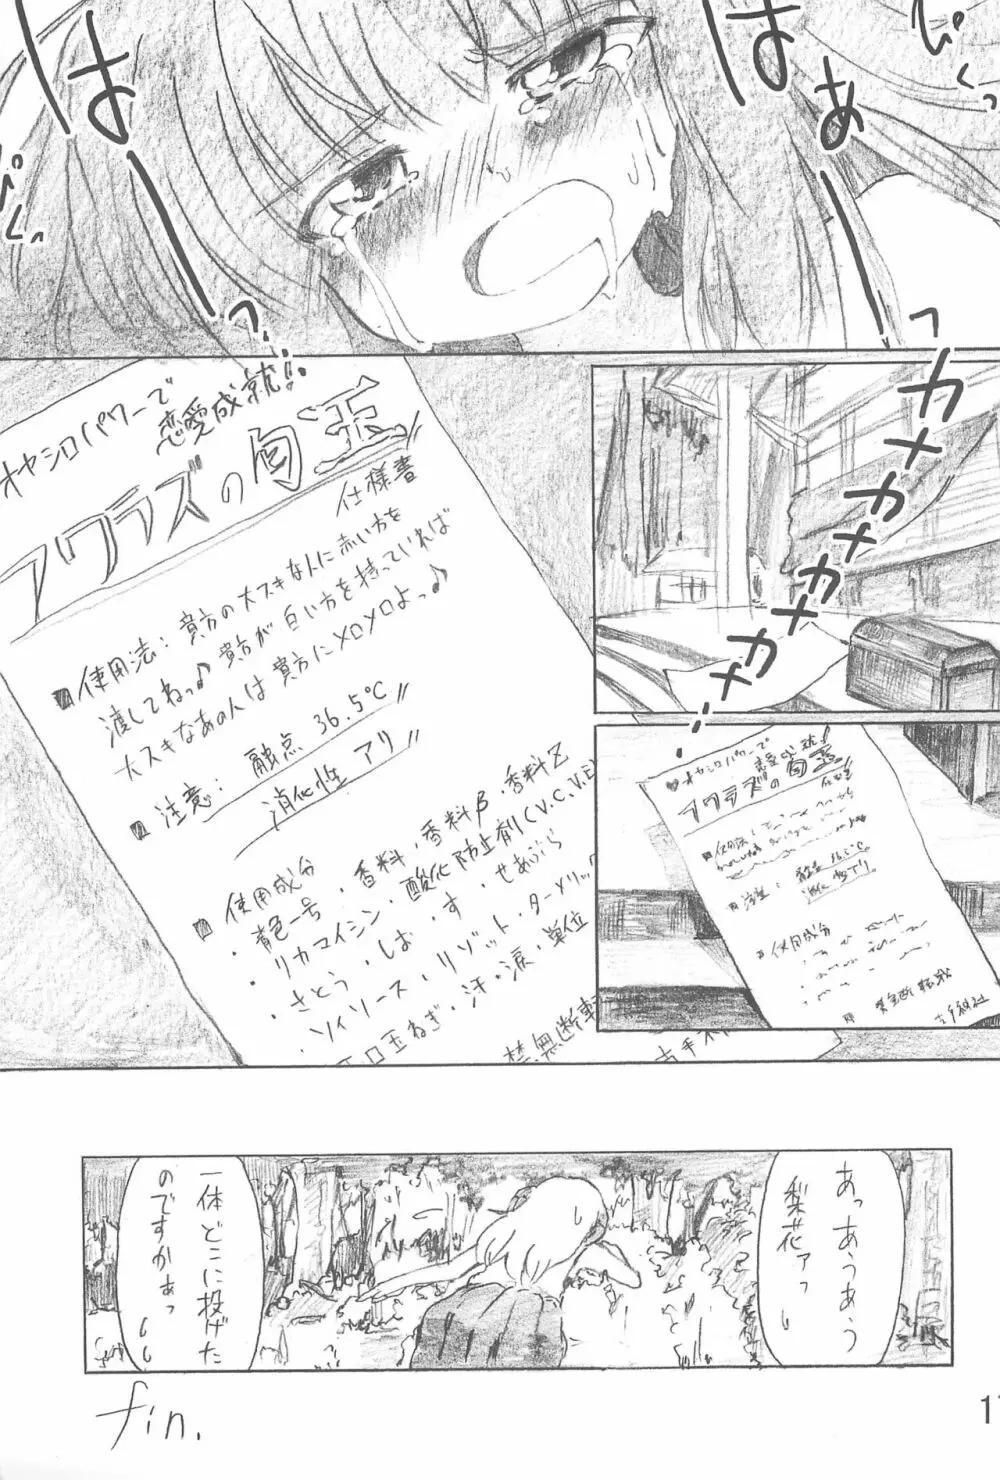 はぁーっ
はーっ
びくっ
びくっ
カメカメカメ…
オヤシロパワーで
恋愛成就!!
フワラズの勾玉
仕様書
■使用法：貴方の大スキな人に赤い方を
渡してねっ♪ 貴方が白い方を持っていれば
大スキなあの人は貴方にメロメロよっ♪
■注意：融点 36.5℃
消化性 アリ
■使用成分
・青色一号、香料、香料β、香料Z
リカマイシン・酸化防止剤(V.C,V.E)
・さとう・しお・す・せあぶら
・ソイソース・リゾット・ターメリッ
玉ねぎ・汗・涙・単位
禁無断転
古手
♥オヤシロパワーで
恋愛成就!
フワラズの勾玉
仕様書
■使用法：
■注意：融点 36.5℃
消化性アリ
■使用成分
禁無断転載
古手神社
あっあうあう
梨花ァっ
一体どこに投げた
のですかぁっ
fin.